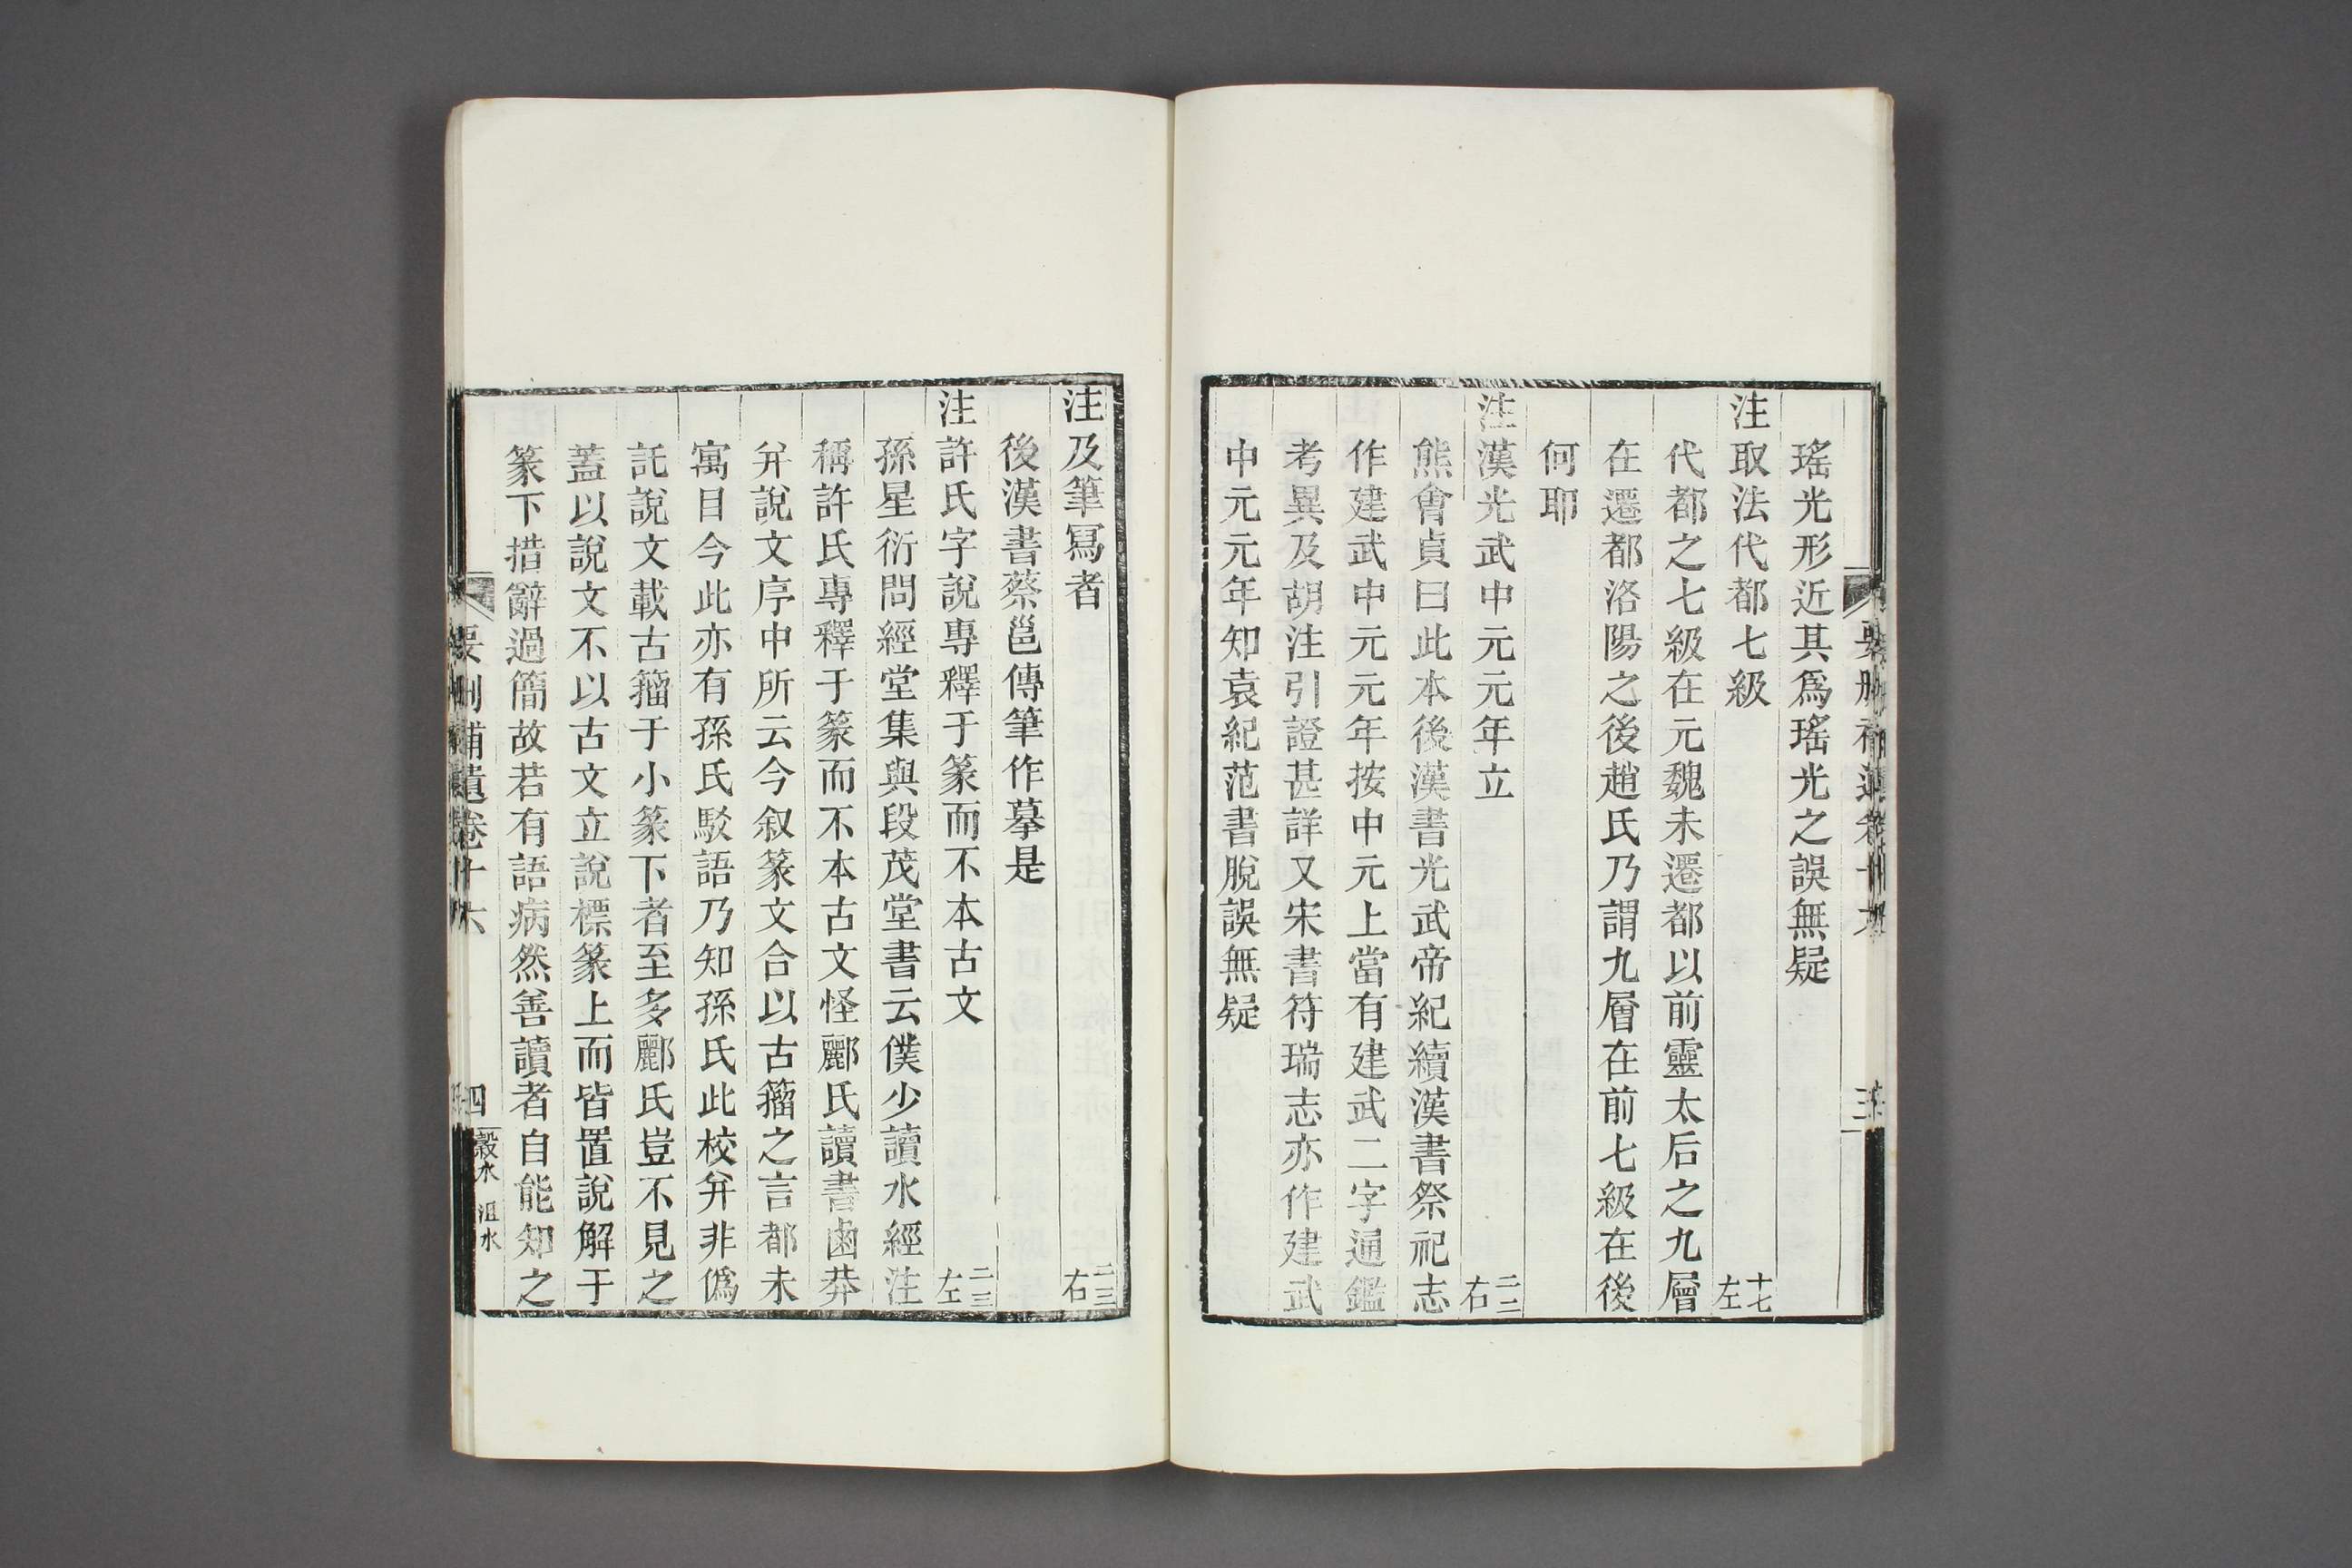 瑤光形近其爲瑤光之誤無疑
注取法代都七級 十七左
代都之七級在元魏未遷都以前靈太后之九層
在遷都洛陽之後趙氏乃謂九層在前七級在後
何耶
注漢光武中元元年立 二二右
熊會貞曰此本後漢書光武帝紀續漢書祭祀志
作建武中元元年按中元上當有建武二字通鑑
考異及胡注引證甚詳又宋書符瑞志亦作建武
中元元年知袁紀范書脫誤無疑
注及筆冩者 二三右
後漢書蔡邕傳筆作摹是
注許氏字說專釋于篆而不本古文 二三左
孫星衍問經堂集與段茂堂書云僕少讀水經注
稱許氏專釋于篆而不本古文怪酈氏讀書鹵莽
弁說文序中所云今叙篆文合以古籀之言都未
寓目今此亦有孫氏駮語乃知孫氏此校弁非僞
託說文載古籀于小篆下者至多酈氏豈不見之
蓋以說文不以古文立說標篆上而皆置說解于
篆下措辭過簡故若有語病然善讀者自能知之
要刪補遺卷十六 四 穀水 沮水